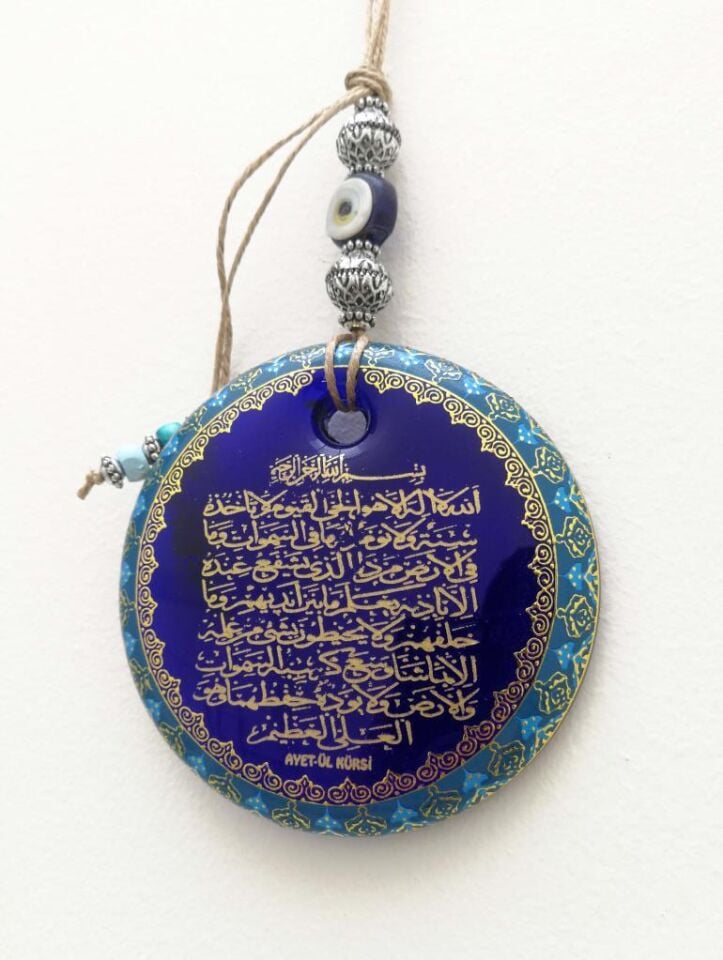 بسم الله الرحمن الرحيم
الله لا اله الا هو الحي القيوم لا تاخذه
سنة ولا نوم له ما في السموات وما
في الارض من ذا الذي يشفع عنده
الا باذنه يعلم ما بين ايديهم وما
خلفهم ولا يحيطون بشئ من علمه
الا بما شاء وسع كرسيه السموات
والارض ولا يوده حفظهما وهو
العلي العظيم
AYET-ÜL KÜRSİ